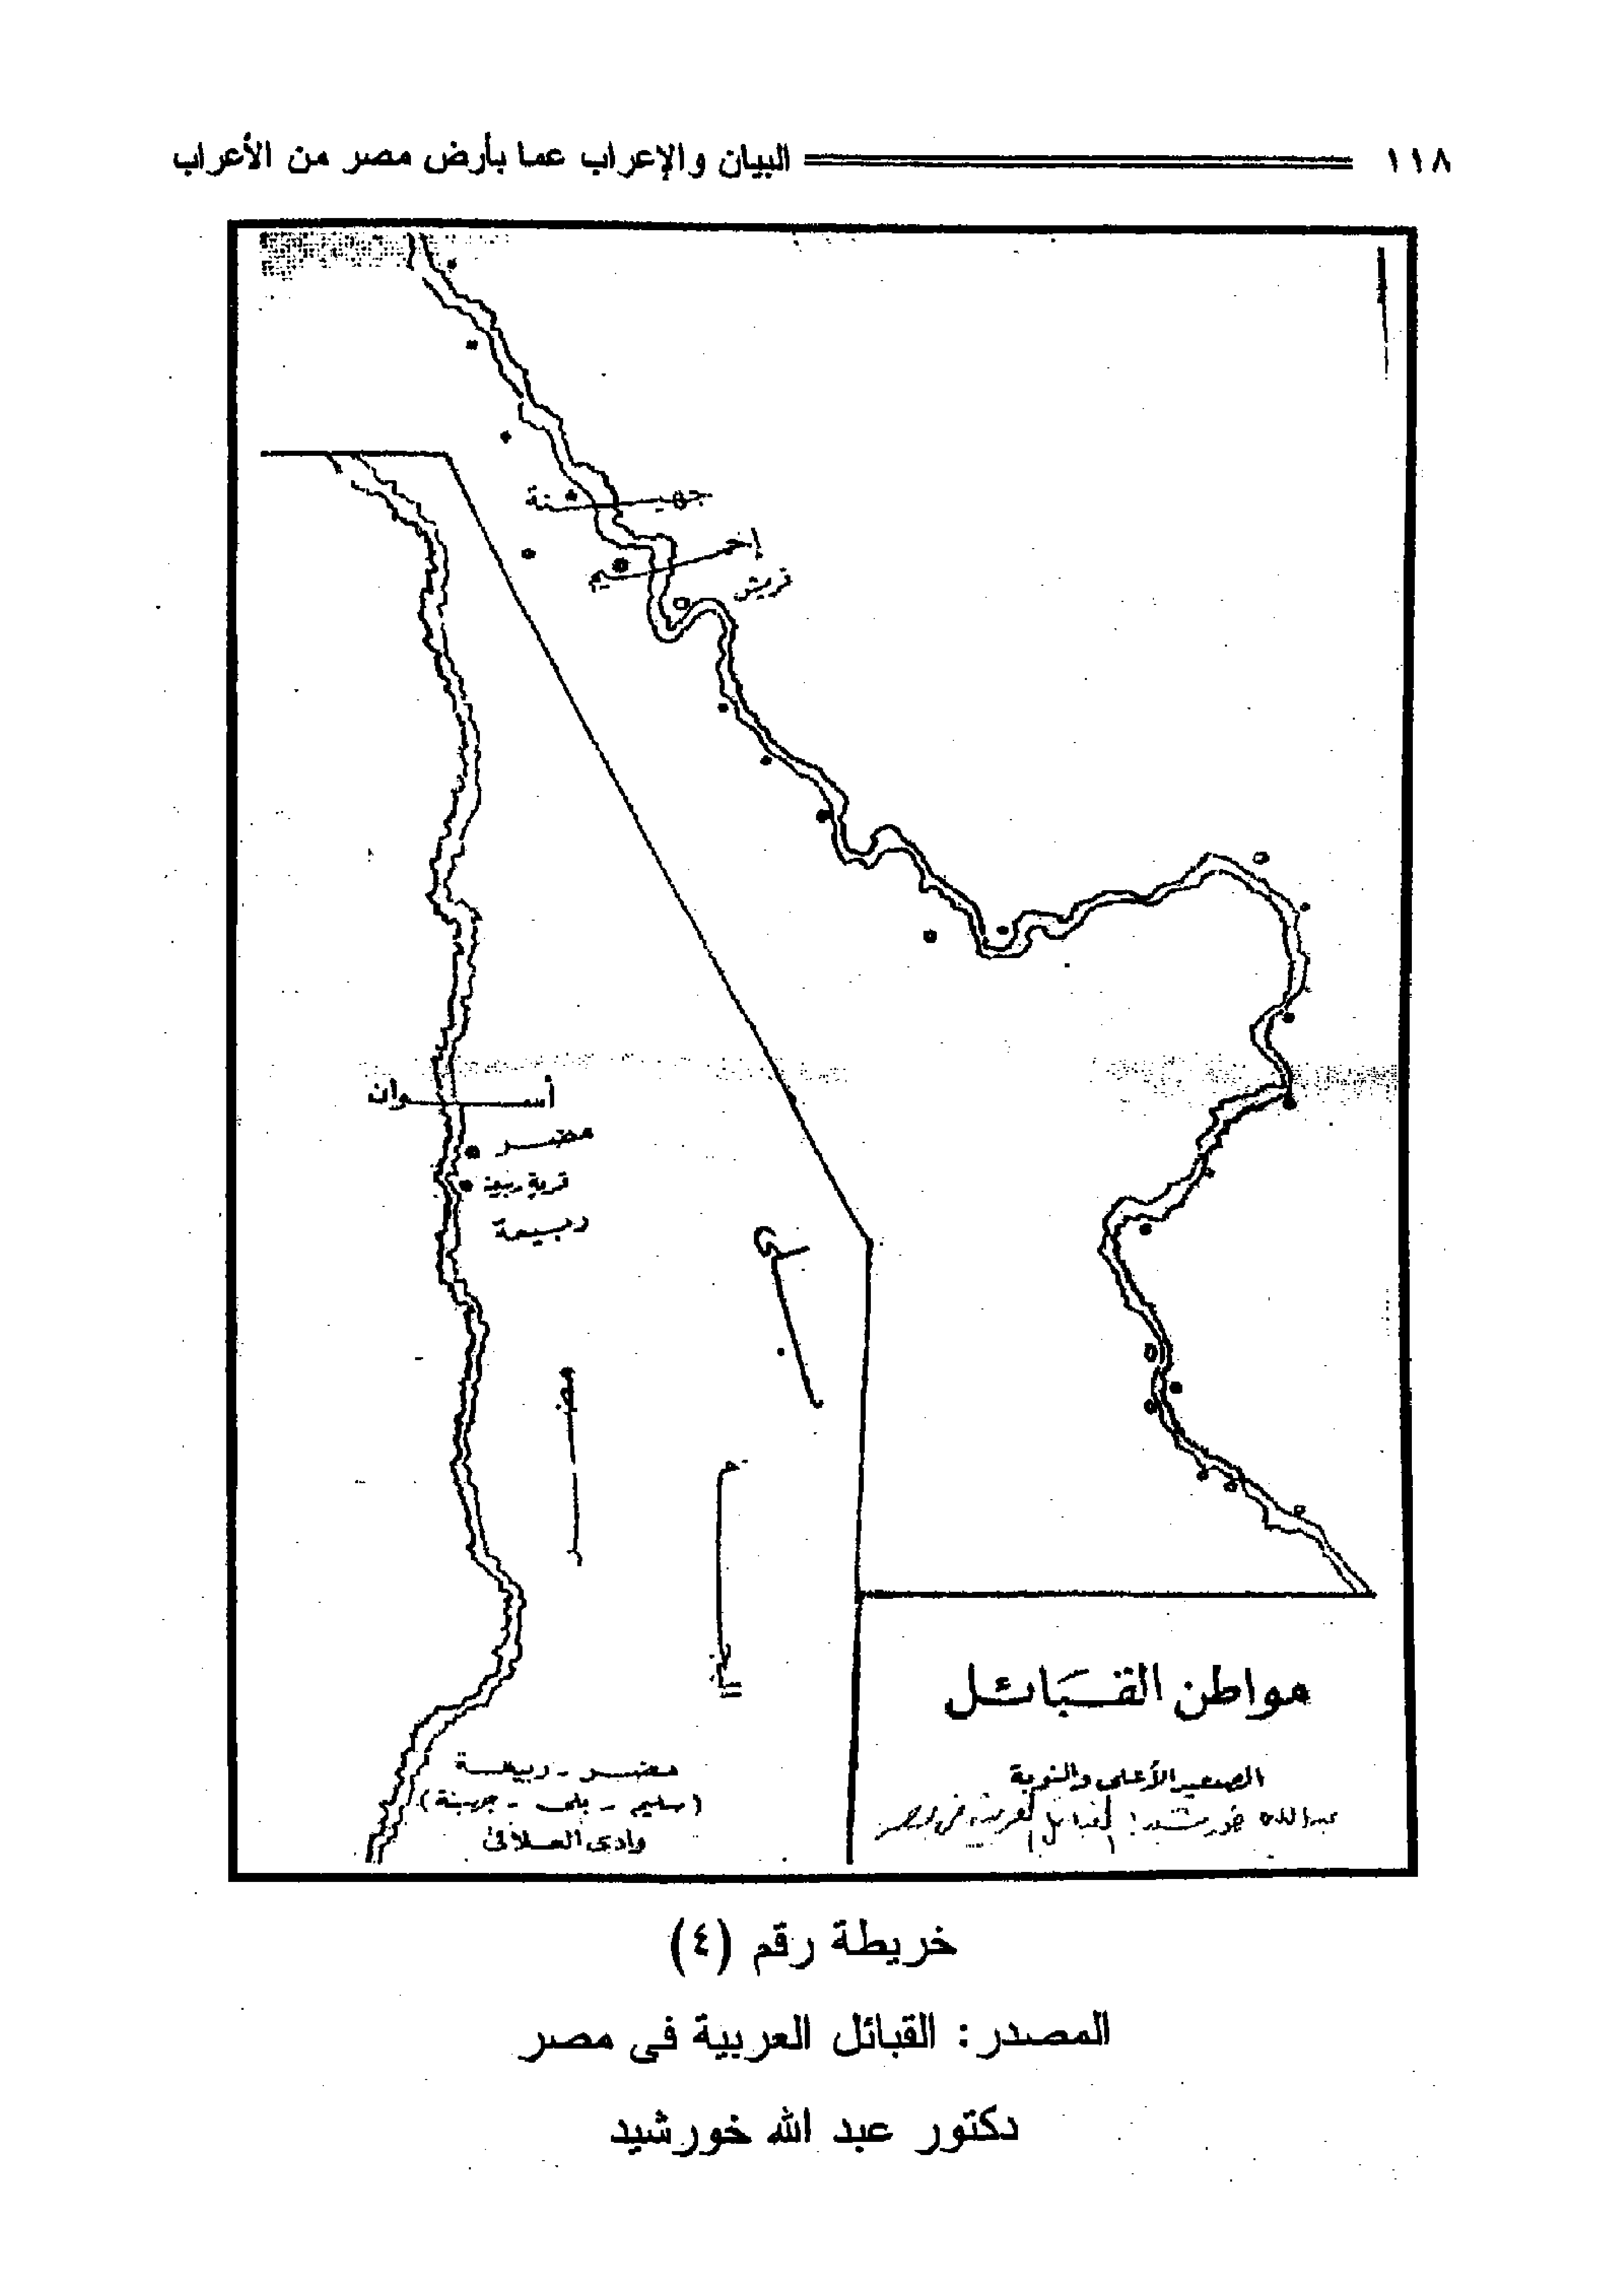 ١١٨ البيان والإعراب عما بأرض مصر من الأعراب
جهينة
إخميم
قريش
أسوان
مضر
قرية ربيعة
ربيعة
مضر
مضر - ربيعة
(سليم - بلى - جهينة)
وادى العلاقى
مواطن القبائل
الصعيد الأعلى والنوبة
عبدالله خورشيد: القبائل العربية فى مصر
خريطة رقم (٤)
المصدر: القبائل العربية فى مصر
دكتور عبد الله خورشيد